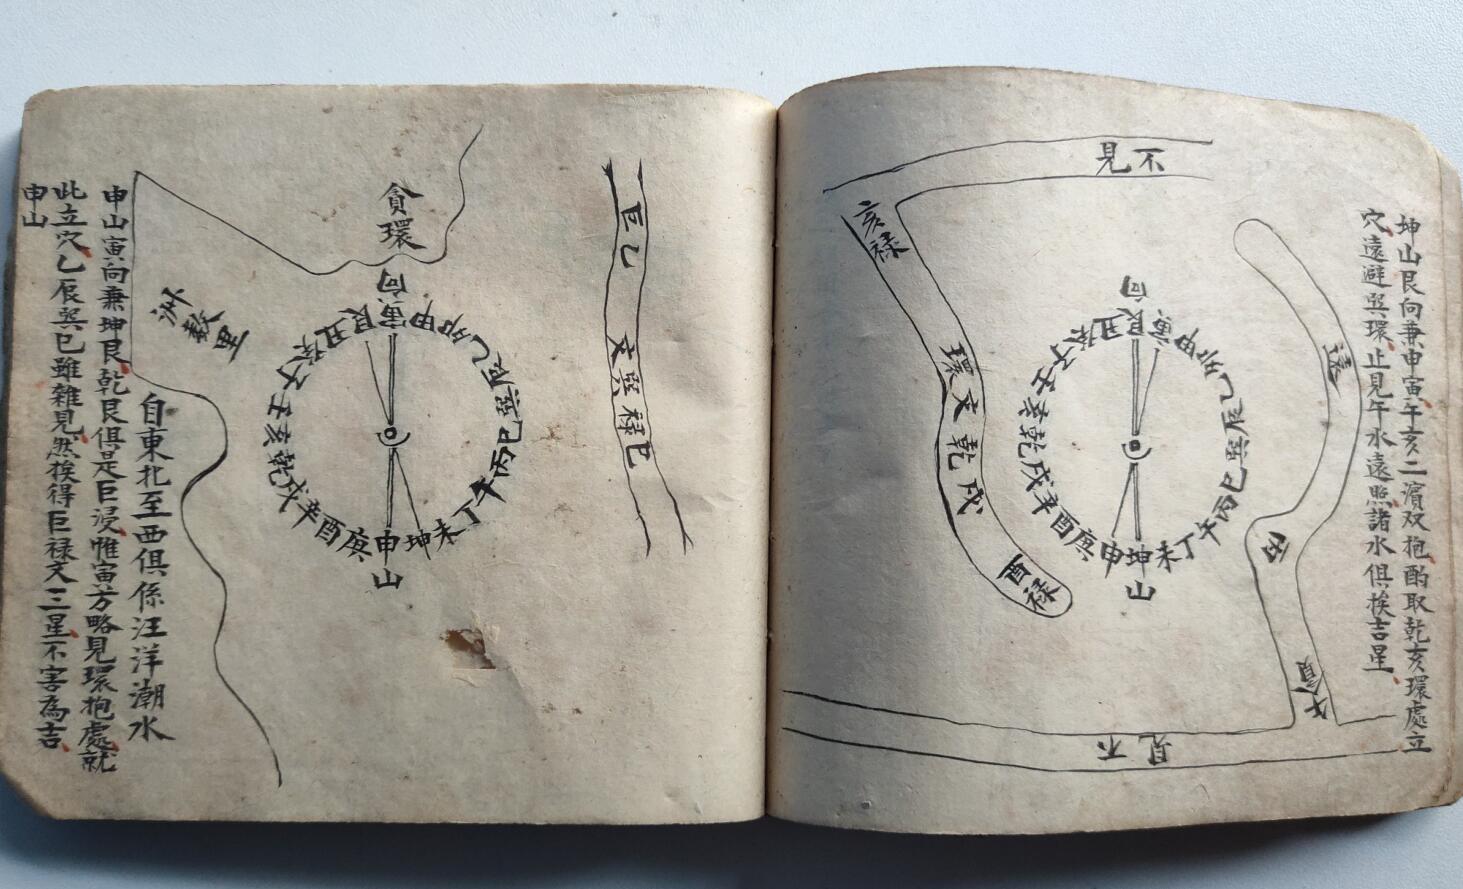 坤山艮向兼申寅午亥二濵双抱酌取乾亥環處立
穴遠避巽環止見午水遠照諸水俱挨吉星
不見
亥禄
環文乾戌
酉禄
遠
午貪
不見
向
艮寅甲卯乙辰巽巳丙午丁未坤申庚酉辛戌乾亥壬子癸丑
山
巨乙
文巽禄巳
貪環
向
寅甲卯乙辰巽巳丙午丁未坤申庚酉辛戌乾亥壬子癸丑艮
山
数里
自東北至西俱係汪洋潮水
申山寅向兼坤艮乾艮俱是巨浸惟寅方略見環抱處就
此立穴乙辰巽巳雖雜見然挨得巨禄文三星不害為吉
申山